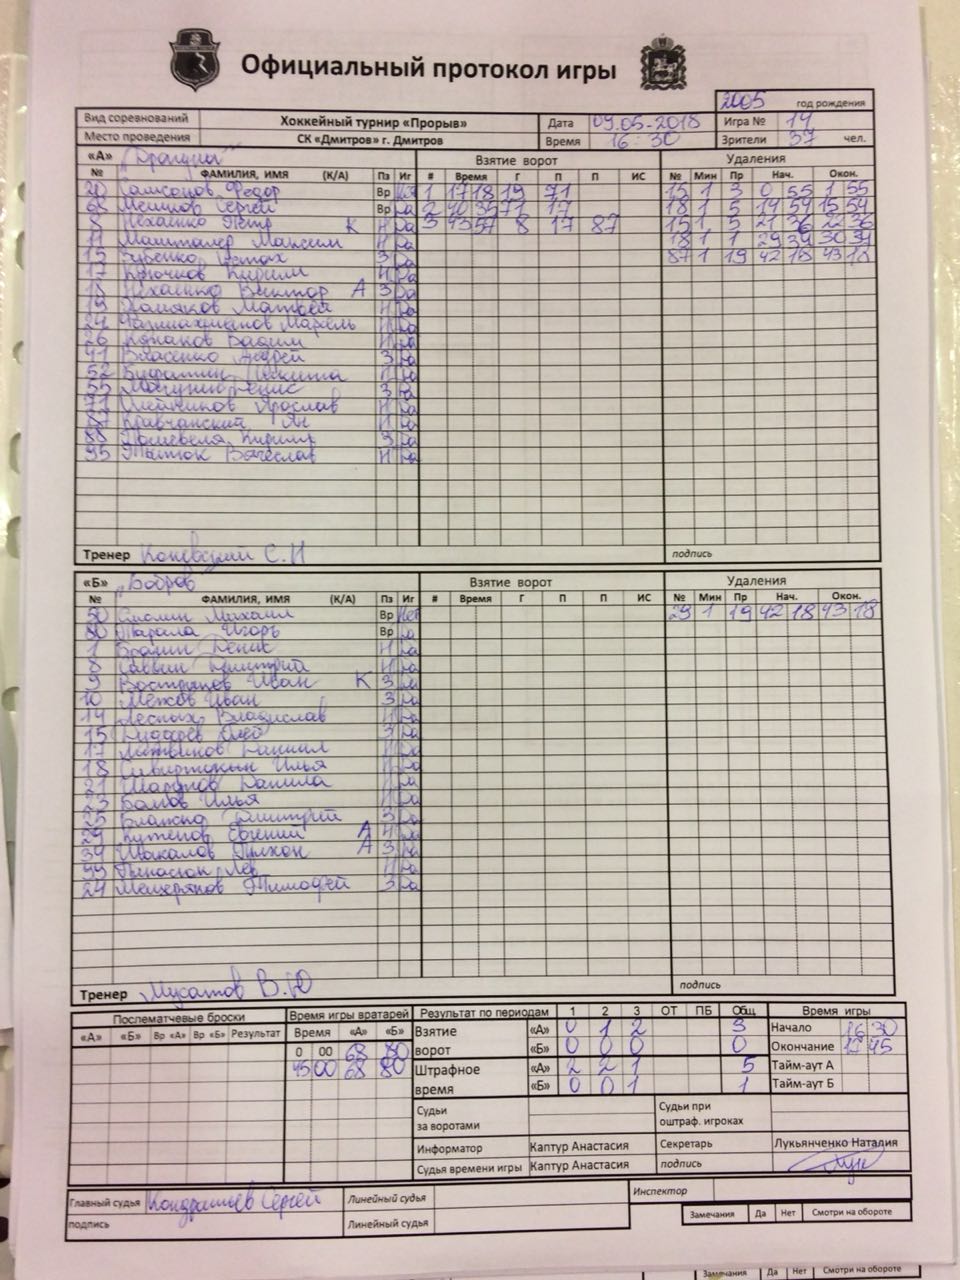 Официальный протокол игры
2005 год рождения
Вид соревнований Хоккейный турнир «Прорыв» Дата 09.05.2018 Игра № 14
Место проведения СК «Дмитров» г. Дмитров Время 16:30 Зрители 37 чел.
«А» Взятие ворот Удаления
№ ФАМИЛИЯ, ИМЯ (К/А) Пз Иг # Время Г П П ИС № Мин Пр Нач. Окон.
20 Самсонов Федор Вр 1 17 18 19 71 15 1 3 0 55 1 55
68 Мешков Сергей Вр да 2 40 35 71 17 18 1 5 14 59 15 54
8 Нехаенко Петр К Н да 3 43 57 8 17 87 15 1 5 21 36 22 36
11 Машталер Максим Н да 18 1 1 29 39 30 39
15 Зубенко З да 87 1 19 42 18 43 18
17 Крючков Кирилл Н да
18 Нехаенко Виктор А З да
19 Хомяков Матвей Н да
24 Марсель Н да
26 Вадим Н да
41 Власенко Андрей З да
52 Никита Н да
55 Денис З да
71 Олейников Ярослав Н да
87 Кривчанский Ян Н да
88 Кирилл З да
95 Тытюк Вячеслав Н да
Тренер С.Н подпись
«Б» "Бобров" Взятие ворот Удаления
№ ФАМИЛИЯ, ИМЯ (К/А) Пз Иг # Время Г П П ИС № Мин Пр Нач. Окон.
50 Смолин Михаил Вр Нет 29 1 19 42 18 43 18
80 Тарала Игорь Вр да
1 Денис Н да
8 Саввин Дмитрий Н да
9 Вострецов Иван К З да
10 Межов Иван З да
14 Лесных Владислав Н да
15 З да
17 Литвинов Даниил Н да
18 Илья Н да
21 Шарунов Данила Н да
23 Илья Н да
25 Дмитрий З да
29 Кутепов Евгений А Н да
39 Шакалов Тихон А З да
99 Лев Н да
24 Мещеряков Тимофей З да
Тренер Мусатов В.Ю подпись
Послематчевые броски Время игры вратарей Результат по периодам 1 2 3 ОТ ПБ Общ Время игры
«А» «Б» Вр «А» Вр «Б» Результат Время «А» «Б» Взятие ворот «А» 0 1 2 3 Начало 16 30
0 00 68 80 «Б» 0 0 0 0 Окончание 45
45 00 68 80 Штрафное время «А» 2 2 1 5 Тайм-аут А
«Б» 0 0 1 1 Тайм-аут Б
Судьи за воротами Судьи при оштраф. игроках
Информатор Каптур Анастасия Секретарь Лукьянченко Наталия
Судья времени игры Каптур Анастасия подпись
Главный судья Кондрашев Сергей Линейный судья Инспектор
подпись Линейный судья Замечания Да Нет Смотри на обороте
Замечания Да Нет Смотри на обороте